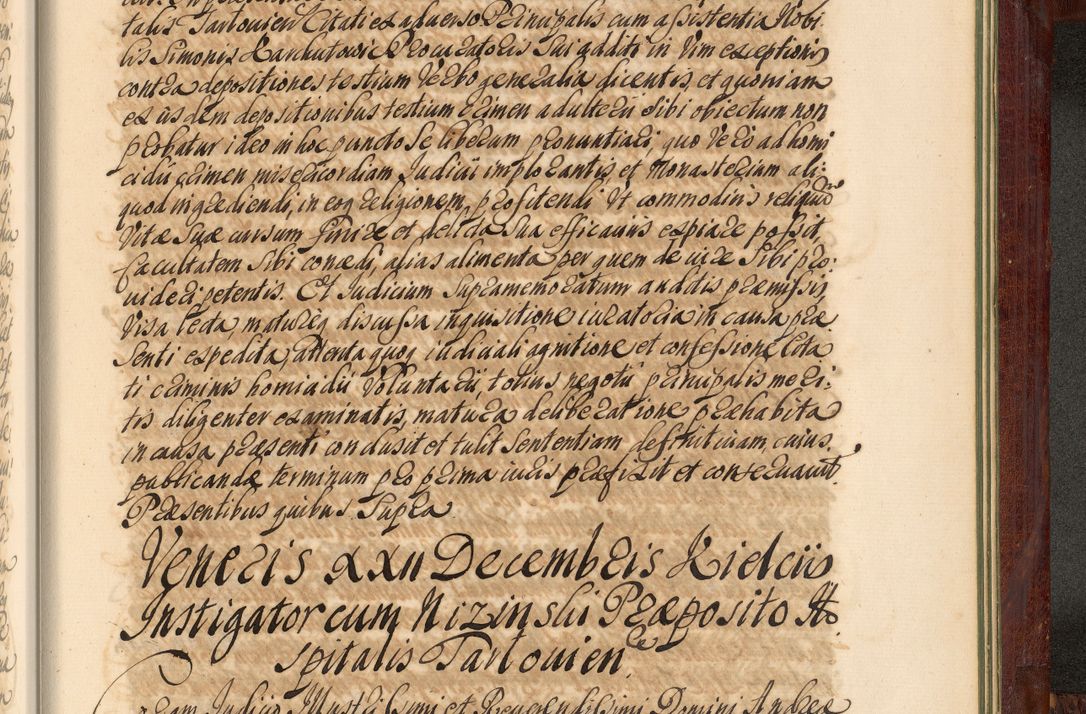 talis Tarlovien Citati ex adverso Principalis cum assistentia Nobi
lis Simonis Karchutowicz Procuratoris Sui additi in vim exceptionis
contra depositiones testium Verbo generalia dicentis, et quoniam
ex iisdem depositionibus testium crimen adulterii Sibi obiectum non
probatur ideo in hoc puncto Se liberum pronuntiari, quo Vero ad homi
cidii crimen misericordiam Judicii implorantis et Monasterium ali:
quod ingrediendi, in eoq religionem, profitendi Ut commodius reliquum
Vitæ Suæ cursum finire et delicta Sua efficacius expiare possit
facultatem Sibi concedi, alias alimenta per quem de iure Sibi pro:
videri petentis. Et Judicium Supramemoratum auditis præmissis
Visa lecta, matureq discussa inquisitione iuratoria in causa præ
Senti expedita, attenta quoq iudiciali agnitione et confessione Cita
ti criminis homicidii Voluntarii totius negotii principalis meri:
tis diligenter examinatis, matura deliberatione præhabita
in causa præsenti conclusit et tulit Sententiam deffinitivam, cuius
publicandæ terminum pro prima iuris præfixit et conservavit
Præsentibus quibus Supra
Veneris XXII Decembris Kielciis
Instigator cum Nizinski Præposito Ho
spitalis Tarlovien
Coram Judicio Illustrissimi et Reverendissimi Domini Andreæ